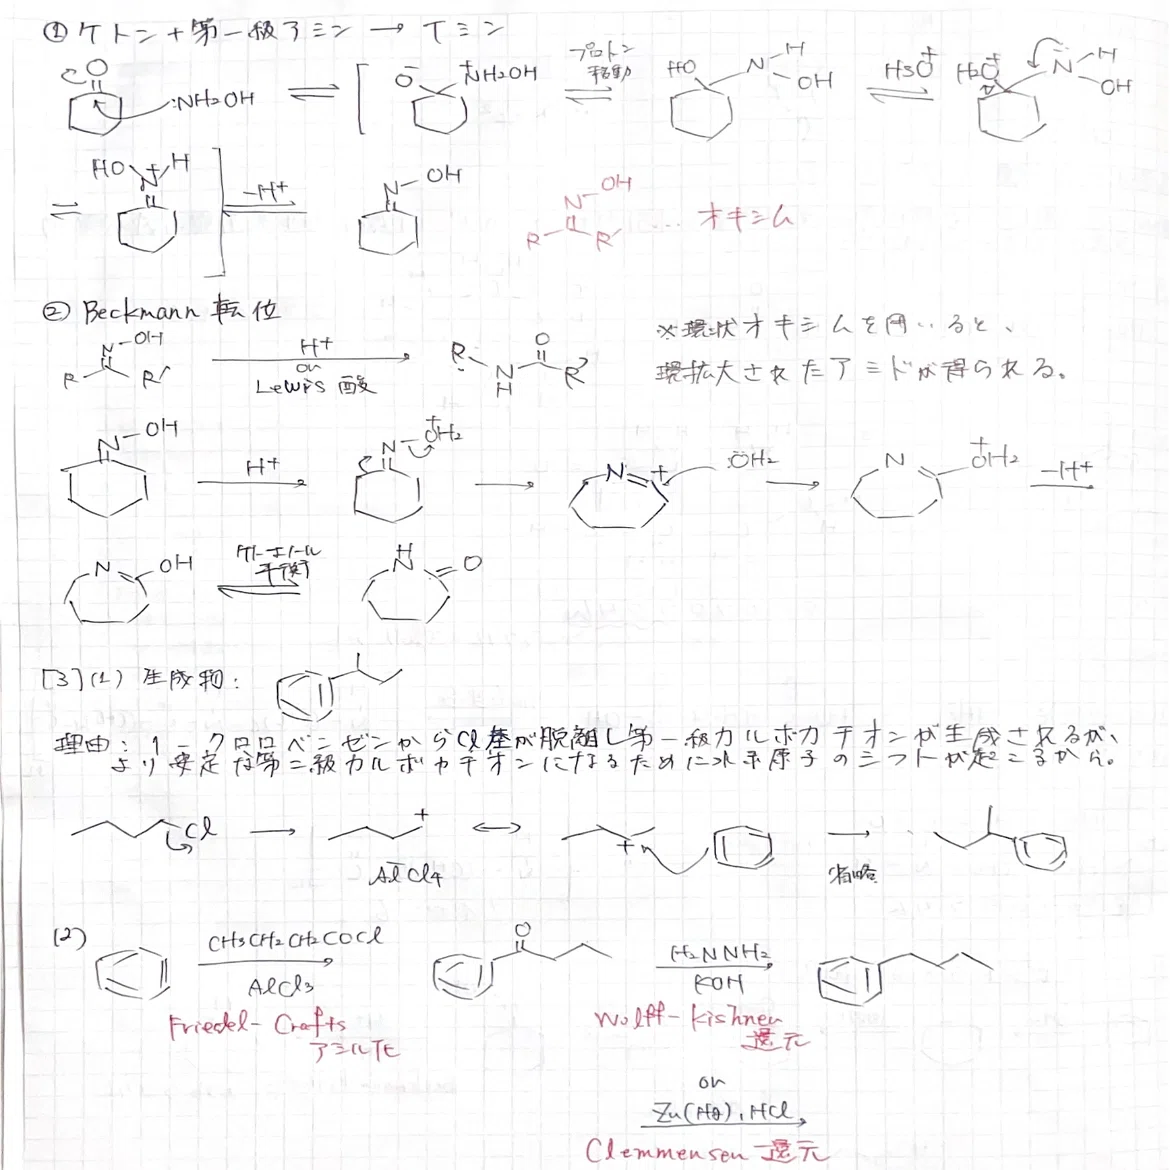 ① ケトン + 第一級アミン → イミン
O
:NH2OH
O⁻ ⁺NH2OH
プロトン移動
HO N H OH
H3O⁺
H2O⁺ N̈ H OH
HO N⁺ H
-H⁺
N-OH
N-OH R R' オキシム
② Beckmann 転位
N-OH R R'
H⁺ or Lewis 酸
R N H O R'
※環状オキシムを用いると、
環拡大されたアミドが得られる。
N-OH
H⁺
N-⁺OH2
N +
ÖH2
N ⁺OH2
-H⁺
N OH
ケト-エノール平衡
H N O
[3](1) 生成物:
理由: 1-クロロベンゼンからCl基が脱離し第一級カルボカチオンが生成されるが、
より安定な第二級カルボカチオンになるために水素原子のシフトが起こるから。
Cl
+
AlCl4⁻
+
省略
(2)
CH3CH2CH2COCl
AlCl3
Friedel-Crafts
アシル化
O
H2NNH2
KOH
Wolff-Kishner
還元
or
Zn(Hg), HCl
Clemmensen 還元